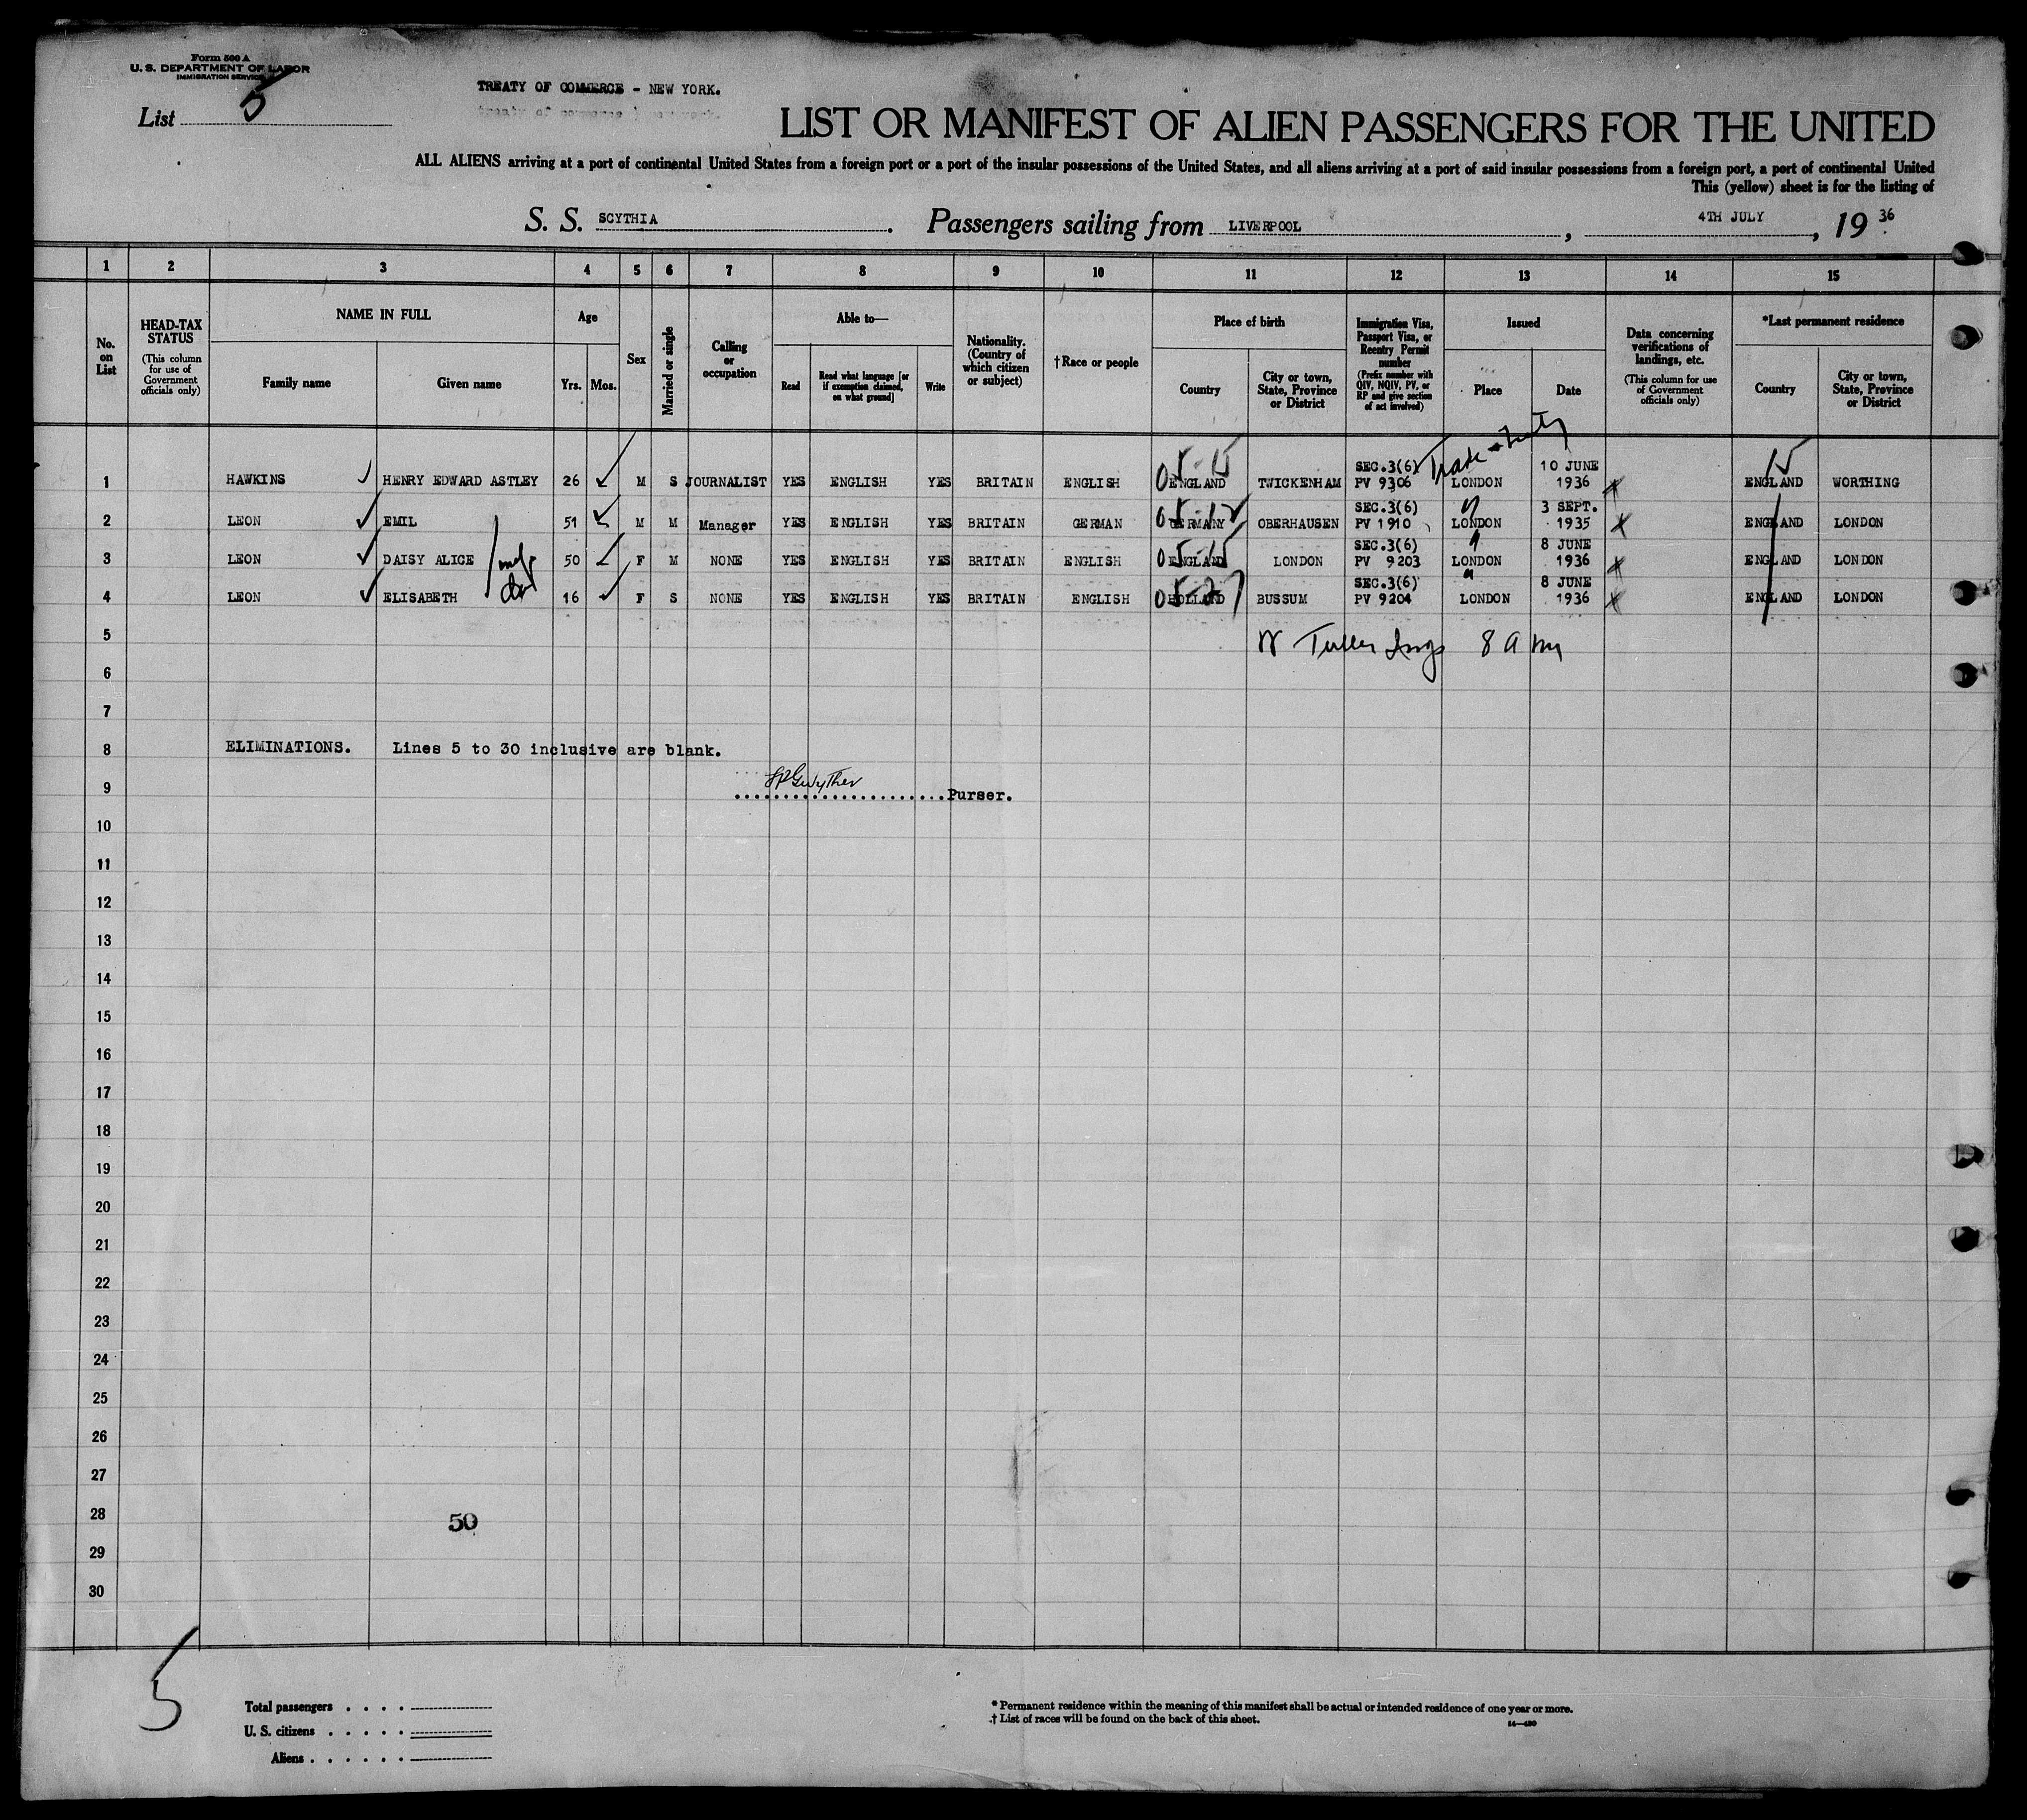 Form 500 A
U. S. DEPARTMENT OF LABOR
IMMIGRATION SERVICE
List 5
TREATY OF COMMERCE - NEW YORK.
LIST OR MANIFEST OF ALIEN PASSENGERS FOR THE UNITED
ALL ALIENS arriving at a port of continental United States from a foreign port or a port of the insular possessions of the United States, and all aliens arriving at a port of said insular possessions from a foreign port, a port of continental United
This (yellow) sheet is for the listing of
S. S. SCYTHIA. Passengers sailing from LIVERPOOL, 4TH JULY, 1936
1 2 3 4 5 6 7 8 9 10 11 12 13 14 15
No. on List
HEAD-TAX STATUS
(This column for use of Government officials only)
NAME IN FULL
Family name
Given name
Age
Yrs. Mos.
Sex
Married or single
Calling or occupation
Able to—
Read
Read what language [or if exemption claimed, on what ground]
Write
Nationality. (Country of which citizen or subject)
†Race or people
Place of birth
Country
City or town, State, Province or District
Immigration Visa, Passport Visa, or Reentry Permit number
(Prefix number with QIV, NQIV, PV, or RP and give section of act involved)
Issued
Place
Date
Data concerning verifications of landings, etc.
(This column for use of Government officials only)
*Last permanent residence
Country
City or town, State, Province or District
1 HAWKINS HENRY EDWARD ASTLEY 26 M S JOURNALIST YES ENGLISH YES BRITAIN ENGLISH ENGLAND TWICKENHAM SEC.3(6) PV 9306 LONDON 10 JUNE 1936 ENGLAND WORTHING
2 LEON EMIL 51 M M Manager YES ENGLISH YES BRITAIN GERMAN GERMANY OBERHAUSEN SEC.3(6) PV 1910 LONDON 3 SEPT. 1935 ENGLAND LONDON
3 LEON DAISY ALICE 50 F M NONE YES ENGLISH YES BRITAIN ENGLISH ENGLAND LONDON SEC.3(6) PV 9203 LONDON 8 JUNE 1936 ENGLAND LONDON
4 LEON ELISABETH 16 F S NONE YES ENGLISH YES BRITAIN ENGLISH HOLLAND BUSSUM SEC.3(6) PV 9204 LONDON 8 JUNE 1936 ENGLAND LONDON
5
6
7
8 ELIMINATIONS. Lines 5 to 30 inclusive are blank.
9 Purser.
10
11
12
13
14
15
16
17
18
19
20
21
22
23
24
25
26
27
28 50
29
30
5
Total passengers
U. S. citizens
Aliens
* Permanent residence within the meaning of this manifest shall be actual or intended residence of one year or more.
† List of races will be found on the back of this sheet.
14—480